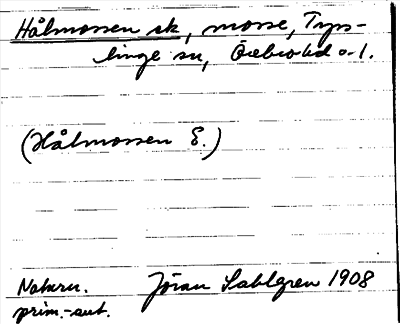 Hålmossen sk, mosse, Tyss-
linge sn, Örebro hd o. l.
(Hålmossen E.)
Naturn. Jöran Sahlgren 1908
prim.-aut.